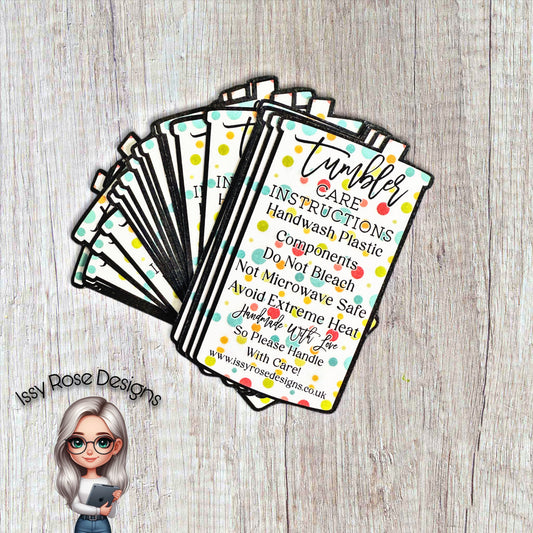 Tumbler
CARE
INSTRUCTIONS
Handwash Plastic
Components
Do Not Bleach
Not Microwave Safe
Avoid Extreme Heat
Handmade With Love
So Please Handle
With Care!
www.issyrosedesigns.co.uk
Issy Rose Designs